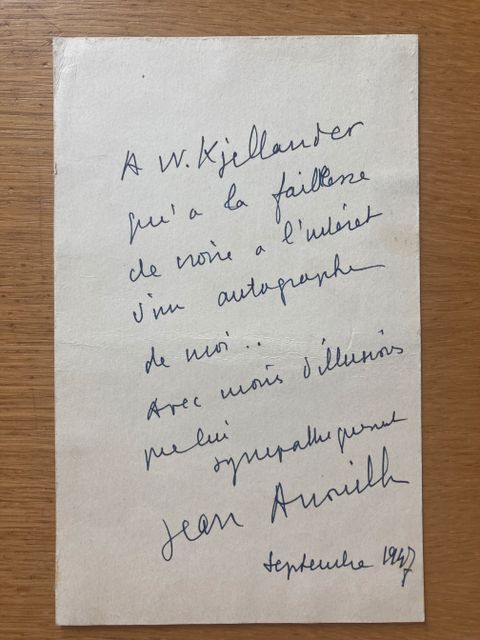 A W. Kjellander
qui a la faiblesse
de croire a l'intéret
d'un autographe
de moi..
Avec moins d'illusions
que lui
sympathiquement
Jean Anouilh
Septembre 1947